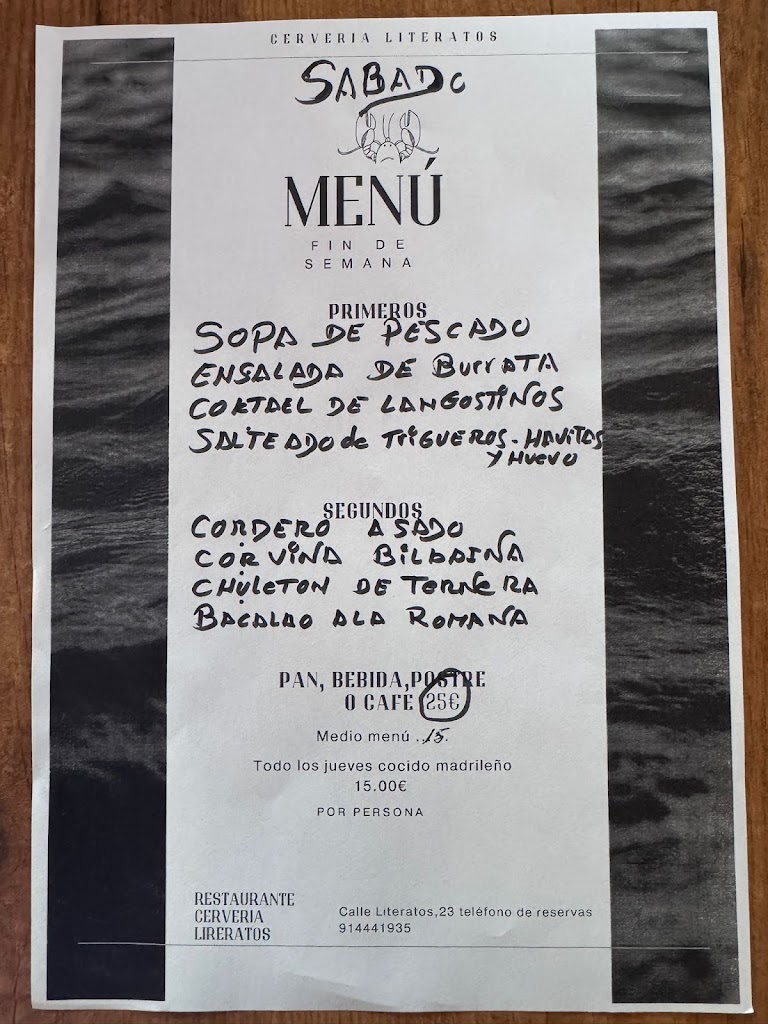 CERVERIA LITERATOS
SABADO
MENÚ
FIN DE
SEMANA
PRIMEROS
SOPA DE PESCADO
ENSALADA DE BURRATA
COKTAEL DE LANGOSTINOS
SALTEADO de TRIGUEROS-HAVITAS
Y HUEVO
SEGUNDOS
CORDERO ASADO
CORVINA BILBAINA
CHULETON DE TERNERA
BACALAO ALA ROMANA
PAN, BEBIDA,POSTRE
O CAFE 25€
Medio menú ..15.
Todo los jueves cocido madrileño
15.00€
POR PERSONA
RESTAURANTE
CERVERIA
LIRERATOS
Calle Literatos,23 teléfono de reservas
914441935